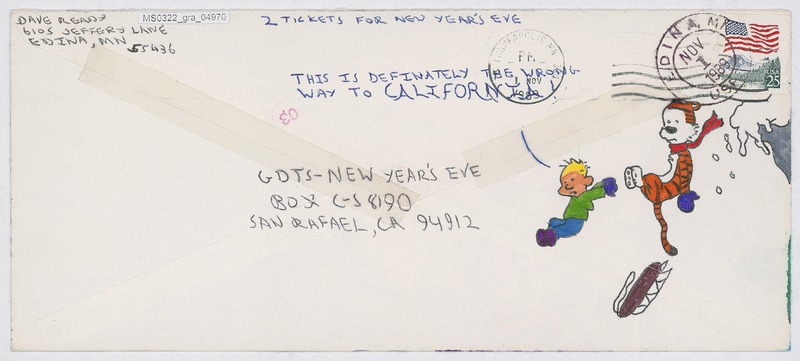 DAVE READY
6105 JEFFERY LANE
EDINA, MN 55436
MS0322_gra_04970
2 TICKETS FOR NEW YEAR'S EVE
PM
NOV
1989
EDINA, MN
NOV
1
1989
USA
25
THIS IS DEFINATELY THE WRONG
WAY TO CALIFORNIA!
GDTS-NEW YEAR'S EVE
BOX CS 8190
SAN RAFAEL, CA 94912